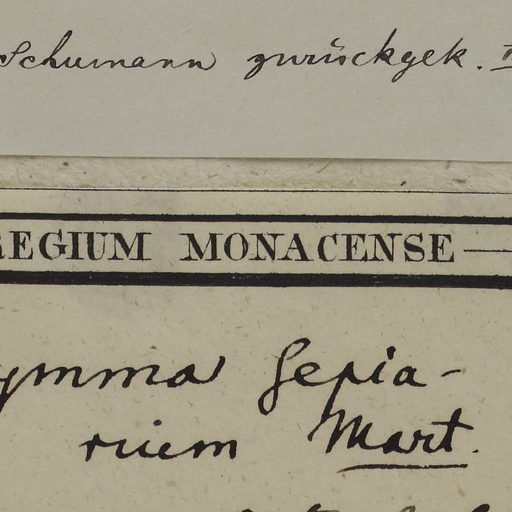 Schumann zurückgek.
REGIUM MONACENSE
ymma sepia-
rium Mart.